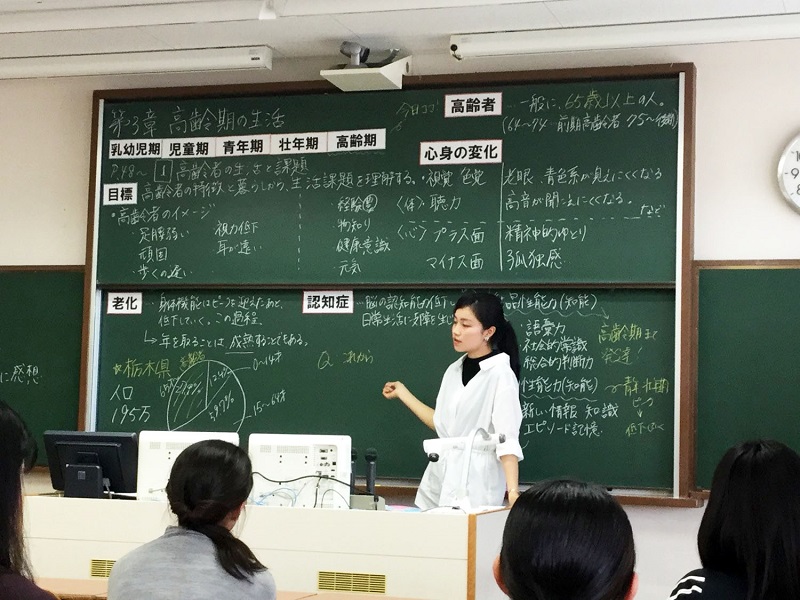 第3章 高齢期の生活
乳幼児期 児童期 青年期 壮年期 高齢期
P.48〜 1 高齢者の生活と課題
目標 高齢者の特徴と暮らしから、生活課題を理解する。
・高齢者のイメージ
足腰弱い 視力低下
頑固 耳が遠い
歩くの遅い
経験豊
物知り
健康意識
元気
今日ココ
高齢者 …一般に、65歳以上の人。
前期高齢者 75〜
心身の変化
・視覚 色覚 老眼、青色系が見えにくくなる
〈体〉聴力 高音が聞こえにくくなる。
など
〈心〉プラス面 精神的ゆとり
マイナス面 孤独感
老化 …身体機能はピークを迎えたあと、
低下していく。この過程。
→年を取ることは成熟することである。
☆栃木県
人口
195万
0〜14才
15〜64才
認知症 …脳の認知能力低下
日常生活に支障を生じ
Q これから
性能力(知能)
・語彙力
社会的常識
総合的判断力
高齢期まで
発達!
性能力(知能)
新しい情報 知識
エピソード記憶
青年期
ピーク
↓
に感想